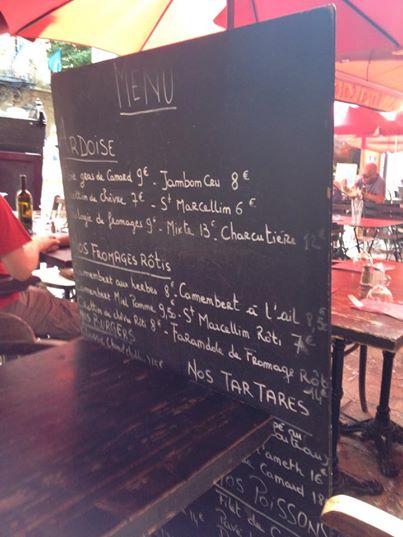 MENU
ARDOISE
gras de Canard 9€ - Jambon Cru 8€
de chèvre 7€ - St Marcellin 6€
de fromages 9€ - Mixte 13€. Charcutière 12€
NOS FROMAGES RÔTIS
Camembert aux herbes 8€. Camembert à l'ail 8,5€
Camembert Miel Pomme 9,5€ - St Marcellin Rôti 7€
de chèvre Rôti 8€ - Farandole de Fromage Rôti 14€
NOS BURGERS
NOS TARTARES
16€
de Canard 18
NOS POISSONS
Filet de
Pavé